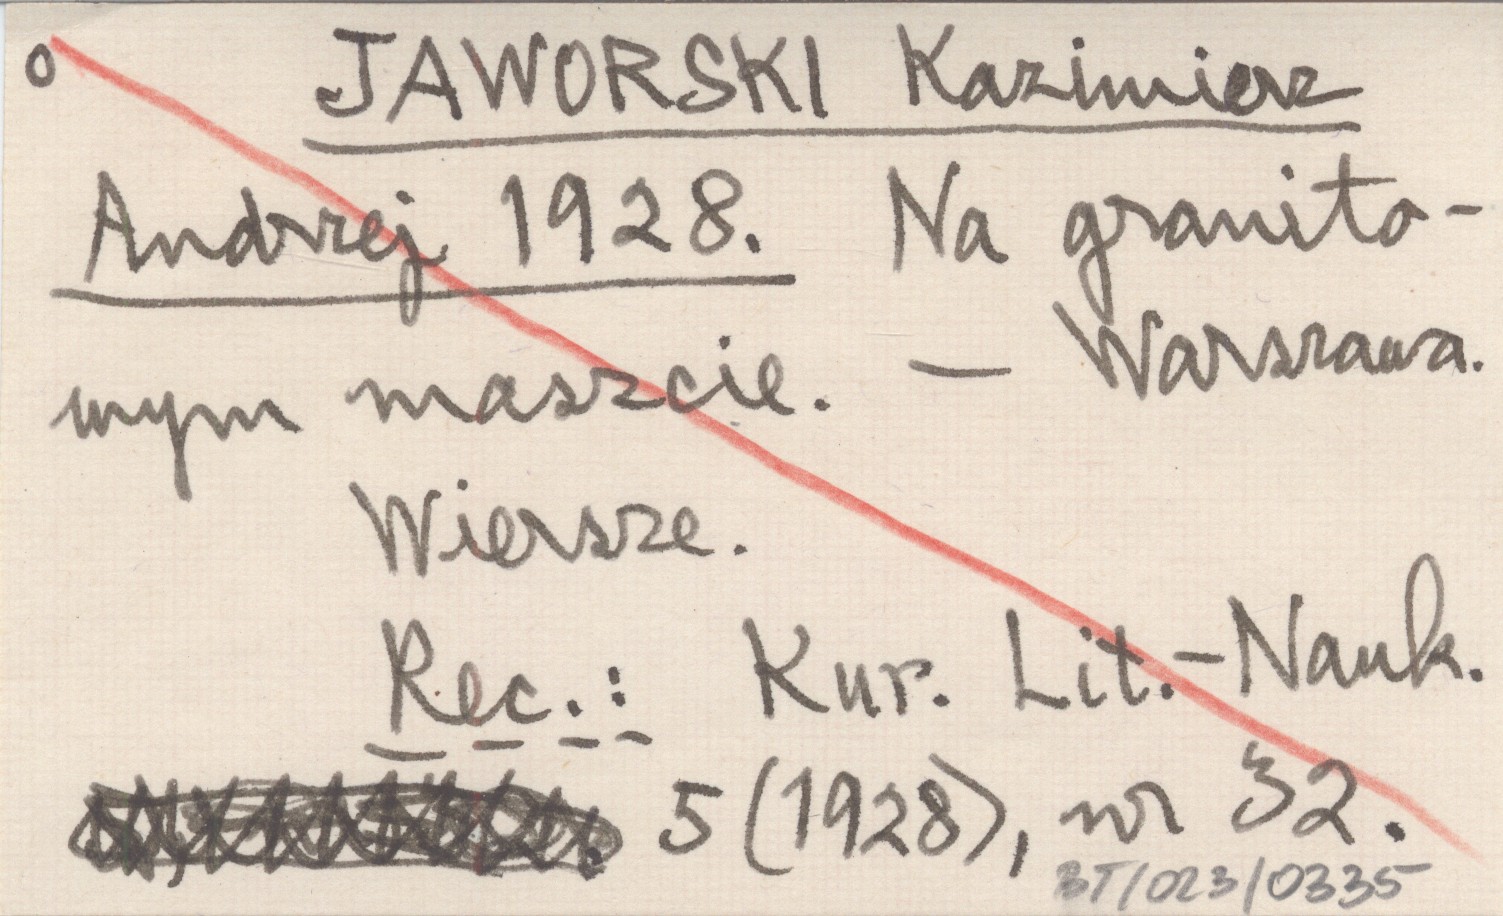 o JAWORSKI Kazimierz
Andrzej 1928. Na granito-
wym maszcie. — Warszawa.
Wiersze.
Rec.: Kur. Lit.-Nauk.
5 (1928), nr 32.
BT/023/0335